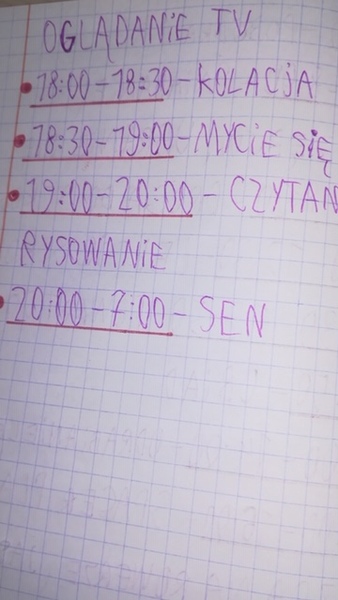 OGLĄDANiE TV
18:00-18:30-KOLACjA
18:30-19:00-MYCiE SiĘ
19:00-20:00- CZYTAN
RYSOWANiE
20:00-7:00- SEN